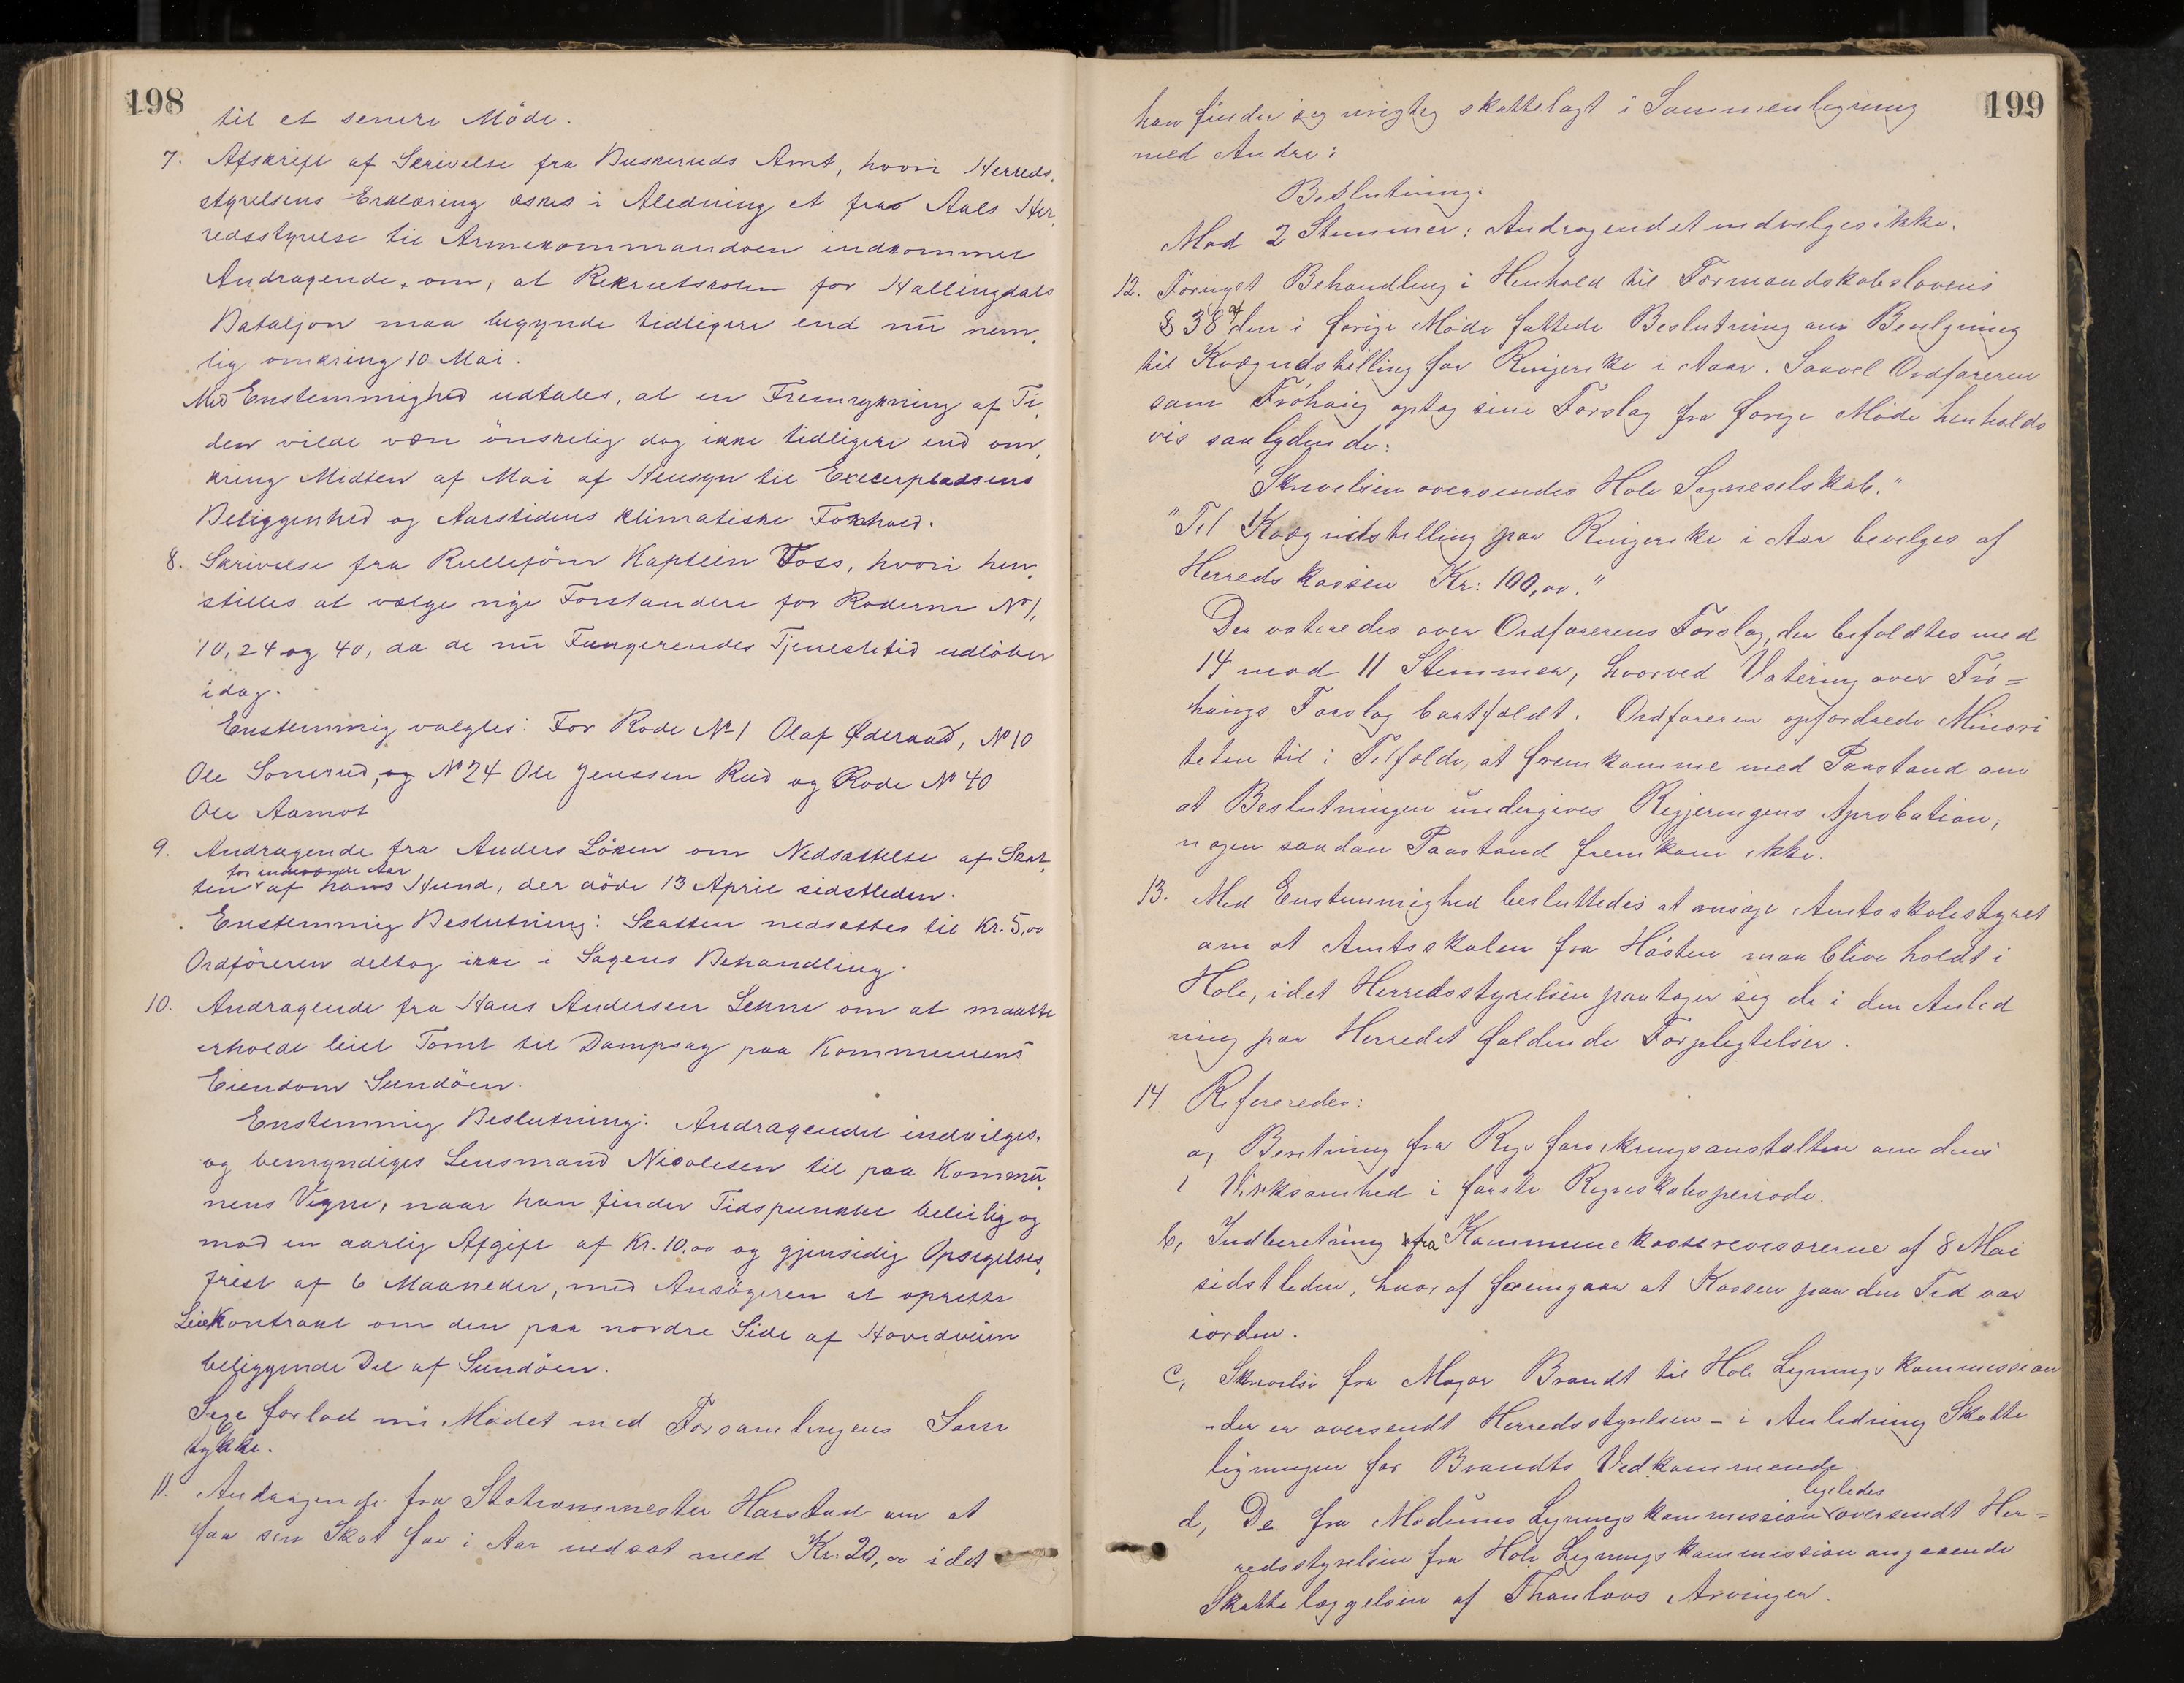 198
til et senere Möde.
7. Afskrift af Skrivelse fra Buskeruds Amt, hvori Herreds-
styrelsens Erklæring æskes i Aledning et fra Aals Her-
redsstyrelse til Armekommandoen indkommet
Andragende, om, at Rekrutskolen for Hallingdals
Bataljon maa begynde tidligere end nu nem-
lig omkring 10 Mai.
Med Enstemmighed udtales, at en Fremrykning af Ti-
den vilde være önskelig dog ikke tidligere end om-
kring Midten af Mai af Hensyn til Excerpladsens
Beliggenhed og Aarstidens klimatiske Forhold.
8. Skrivelse fra Rulleförer Kaptein Foss, hvori hen-
stilles at vælge nye Forstandere for Roderne No 1,
10, 24 og 40, da de nu Fungerendes Tjenestetid udlöber
idag.
Enstemmig valgtes: For Rode No 1 Olaf Öderaad, No 10
Ole Sonerud, og No 24 Ole Jenssen Rud og Rode No 40
Ole Aamot
9. Andragende fra Anders Löken om Nedsættelse af Skat-
for indeværende Aar
ten af hans Hund, der döde 13 April sidstleden.
Enstemmig Beslutning: Skatten nedsættes til Kr. 5,00
Ordföreren deltog ikke i Sagens Behandling.
10. Andragende fra Hans Andersen Lehne om at maatte
erholde leiet Tomt til Dampsag paa Kommunens
Eiendom Sundöen.
Enstemmig Beslutning: Andragendet indvilges,
og bemyndiges Lensmand Nicolaisen til paa Kommu-
nens Vegne, naar han finder Tidspunktet beleilig og
mod en aarlig Afgift af Kr. 10,00 og gjensidig Opsigelses-
frist af 6 Maaneder, med Ansögeren at oprette
Leiekontrakt om den paa nordre Side af Hovedveien
beliggende Del af Sundöen.
forlod nu Mödet med Forsamlingens Sam
tykke.
11. Andragende fra Stationsmester Harstad om at
faa sin Skat for i Aar nedsat med Kr. 20,00 idet
199
han finder sig urigtig skattelagt i Sammenligning
med Andre:
Beslutning:
Mod 2 Stemmer: Andragendet indvilges ikke.
12. Fornyet Behandling i Henhold til Formandskabslovens
§ 38 af den i forige Möde fattede Beslutning om Bevilgning
til Kvægudstilling for Ringerike i Aar. Saavel Ordföreren
som Fröhaug optog sine Forslag fra forige Möde henholds
vis saalydende:
"Skrivelsen oversendes Hole Sogneselskab."
"Til Kvægudstilling paa Ringerike i Aar bevilges af
Herredskassen Kr: 100,00."
Der voteredes over Ordförerens Forslag, der bifaldtes med
14 mod 11 Stemmer, hvorved Votering over Frö=
haugs Forslag bortfaldt. Ordföreren opfordrede Minori
teten til i Tilfælde, at fremkomme med Paastand om
at Beslutningen undergives Regjeringens Aprobation,
nogen saadan Paastand fremkom ikke.
13. Med Enstemmighed besluttedes at ansöge Amtsskolestyret
om at Amtsskolen fra Hösten maa blive holdt i
Hole, idet Herredsstyrelsen paatager sig de i den Anled
ning paa Herredet faldende Forpligtelser.
14 Refereredes:
a, Beretning fra Rigsforsikringsanstalten om dens
Virksomhed i förste Regnskabsperiode.
b, Indberetning fra Kommunekasserevisorerne af 8 Mai
sidstleden, hvoraf fremgaar at Kassen paa den Tid var
iorden.
c, Skrivelse fra Major Brandt til Hole Ligningskommission
- der er oversendt Herredsstyrelsen - i Anledning Skatte
ligningen for Brandts Vedkommende.
ligeledes
d, De fra Modums Ligningskommission oversendt Her=
redsstyrelsen fra Hole Ligningskommission angaaende
Skattelæggelsen af Thaulows Arvinger.